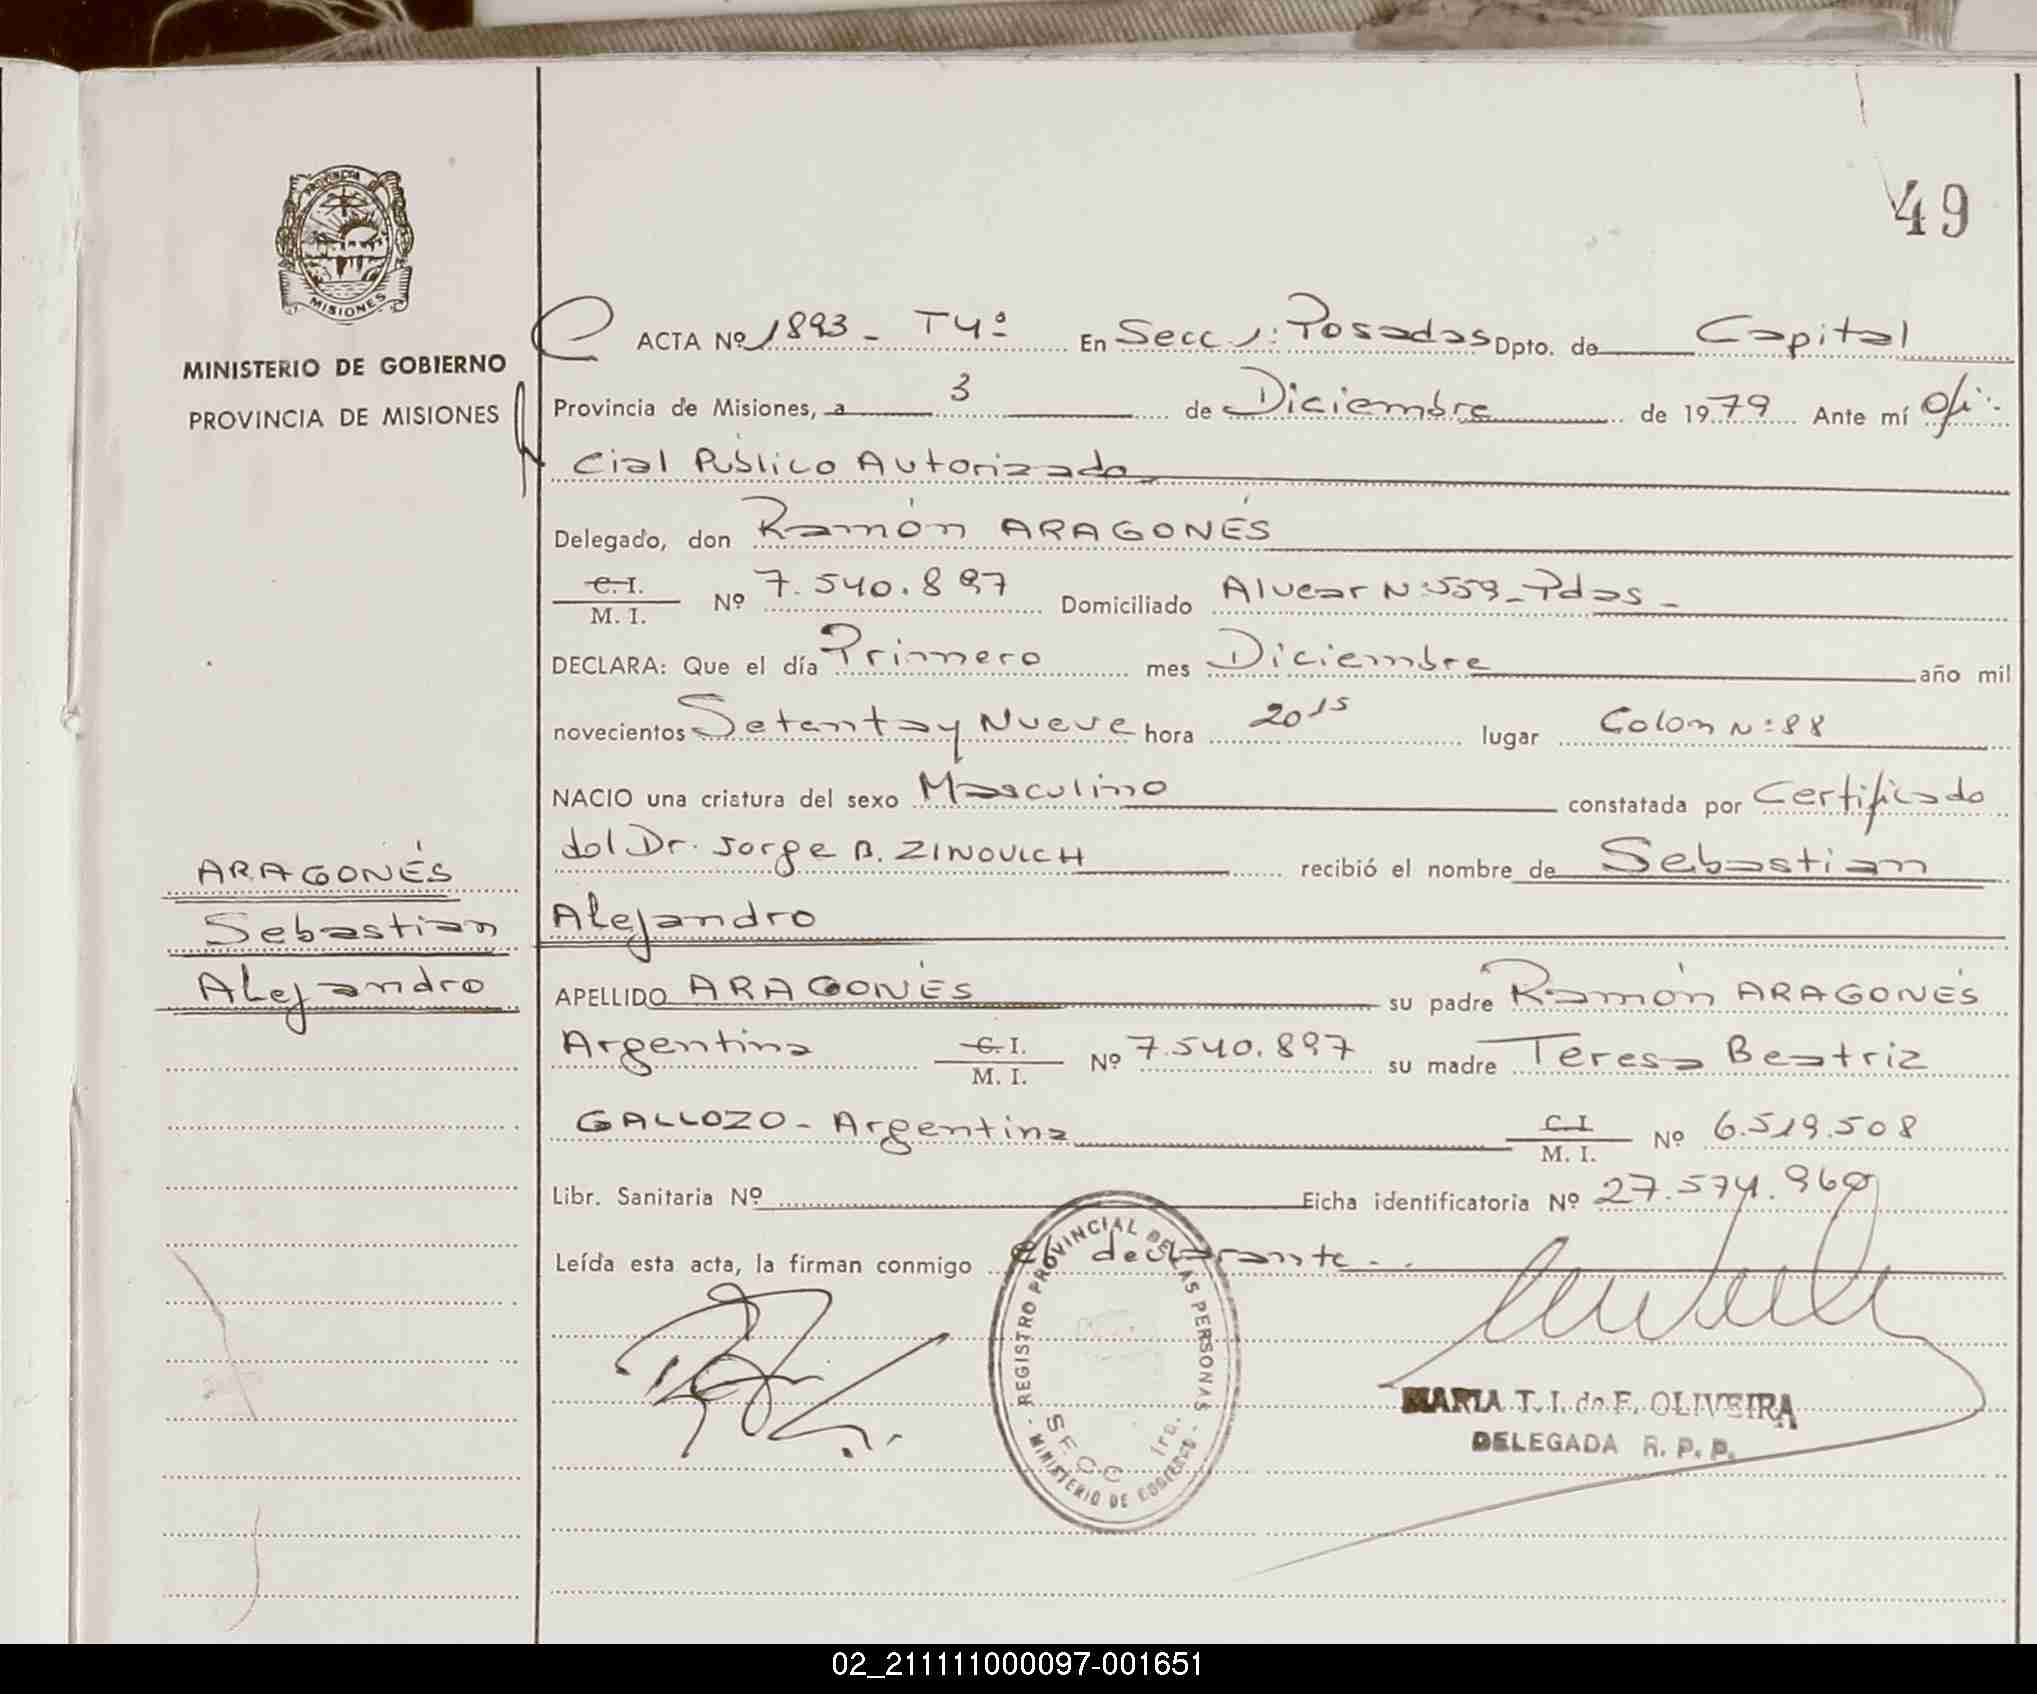 PROVINCIA DE
MISIONES
MINISTERIO DE GOBIERNO
PROVINCIA DE MISIONES
49
ACTA Nº 1893 - T4º En Secc 1: Posadas Dpto. de Capital
Provincia de Misiones, a 3 de Diciembre de 1979 Ante mí Ofi-
cial Público Autorizado
Delegado, don Ramón ARAGONÉS
C.I. / M. I. Nº 7.540.897 Domiciliado Alvear N:559_Pdas_
DECLARA: Que el día Primero mes Diciembre año mil
novecientos Setenta y Nueve hora 20 15 lugar Colon N:88
NACIO una criatura del sexo Masculino constatada por Certificado
del Dr. Jorge B. ZINOVICH recibió el nombre de Sebastian
Alejandro
ARAGONÉS
Sebastian
Alejandro
APELLIDO ARAGONÉS su padre Ramón ARAGONÉS
Argentina C.I. / M. I. Nº 7.540.897 su madre Teresa Beatriz
GALLOZO - Argentina C.I / M. I. Nº 6.519.508
Libr. Sanitaria Nº Ficha identificatoria Nº 27.574.960
Leída esta acta, la firman conmigo el declarante..
REGISTRO PROVINCIAL DE LAS PERSONAS
SECC 1ra.
MINISTERIO DE GOBIERNO
MARIA T. I. de F. OLIVEIRA
DELEGADA R. P. P.
02_211111000097-001651